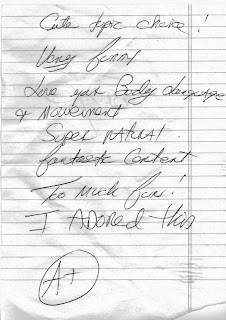 Cute topic choice!
Very funny
Love your Body language
& Movement
Super natural.
fantastic Content
Too Much fun!
I Adored this
A+